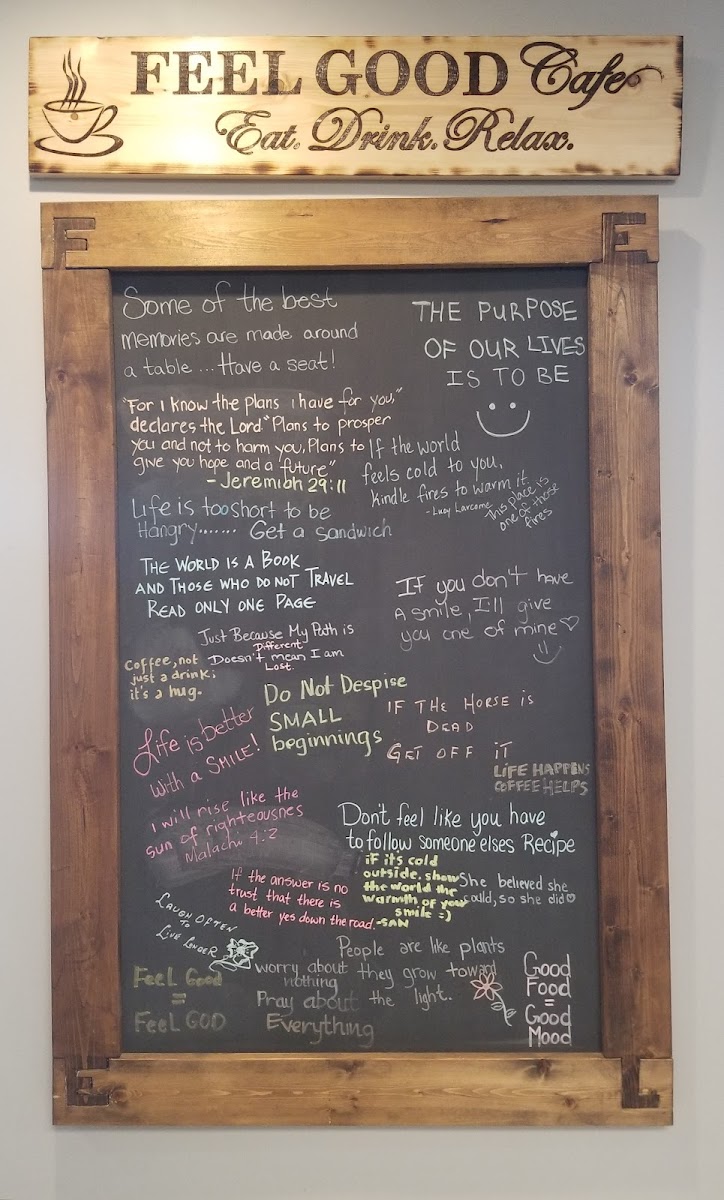 FEEL GOOD Cafe
Eat. Drink. Relax.
Some of the best
memories are made around
a table ... Have a seat!
THE PURPOSE
OF OUR LIVES
IS TO BE
"For I know the Plans i have for you,"
declares the Lord "Plans to prosper
you and not to harm you, Plans to
give you hope and a future"
- Jeremiah 29:11
If the world
feels cold to you,
kindle fires to warm it.
- Lucy Larcome
This place is
one of those
fires
Life is too short to be
Hangry....... Get a sandwich
THE WORLD IS A BOOK
AND THOSE WHO DO NOT TRAVEL
READ ONLY ONE PAGE
If you don't have
A smile, I'll give
you one of mine
Just Because My Path is
Different
Doesn't mean I am
Lost.
Coffee, not
just a drink;
it's a hug.
Do Not Despise
SMALL
beginnings
IF THE HORSE is
DEAD
GET OFF iT
LIFE HAPPENS
COFFEE HELPS
Life is better
with a SMILE!
I will rise like the
sun of righteousnes
Malachi 4:2
Don't feel like you have
to follow someone elses Recipe
If the answer is no
trust that there is
a better yes down the road.
iF its cold
outside. show
the world the
warmth of your
smile =)
-SAN
She believed she
could, so she did
LAUGH OFTEN
TO
LIVE LONGER
People are like plants
they grow toward
the light.
worry about
nothing
Pray about
Everything
Feel Good
=
FeeL GOD
Good
Food
=
Good
Mood